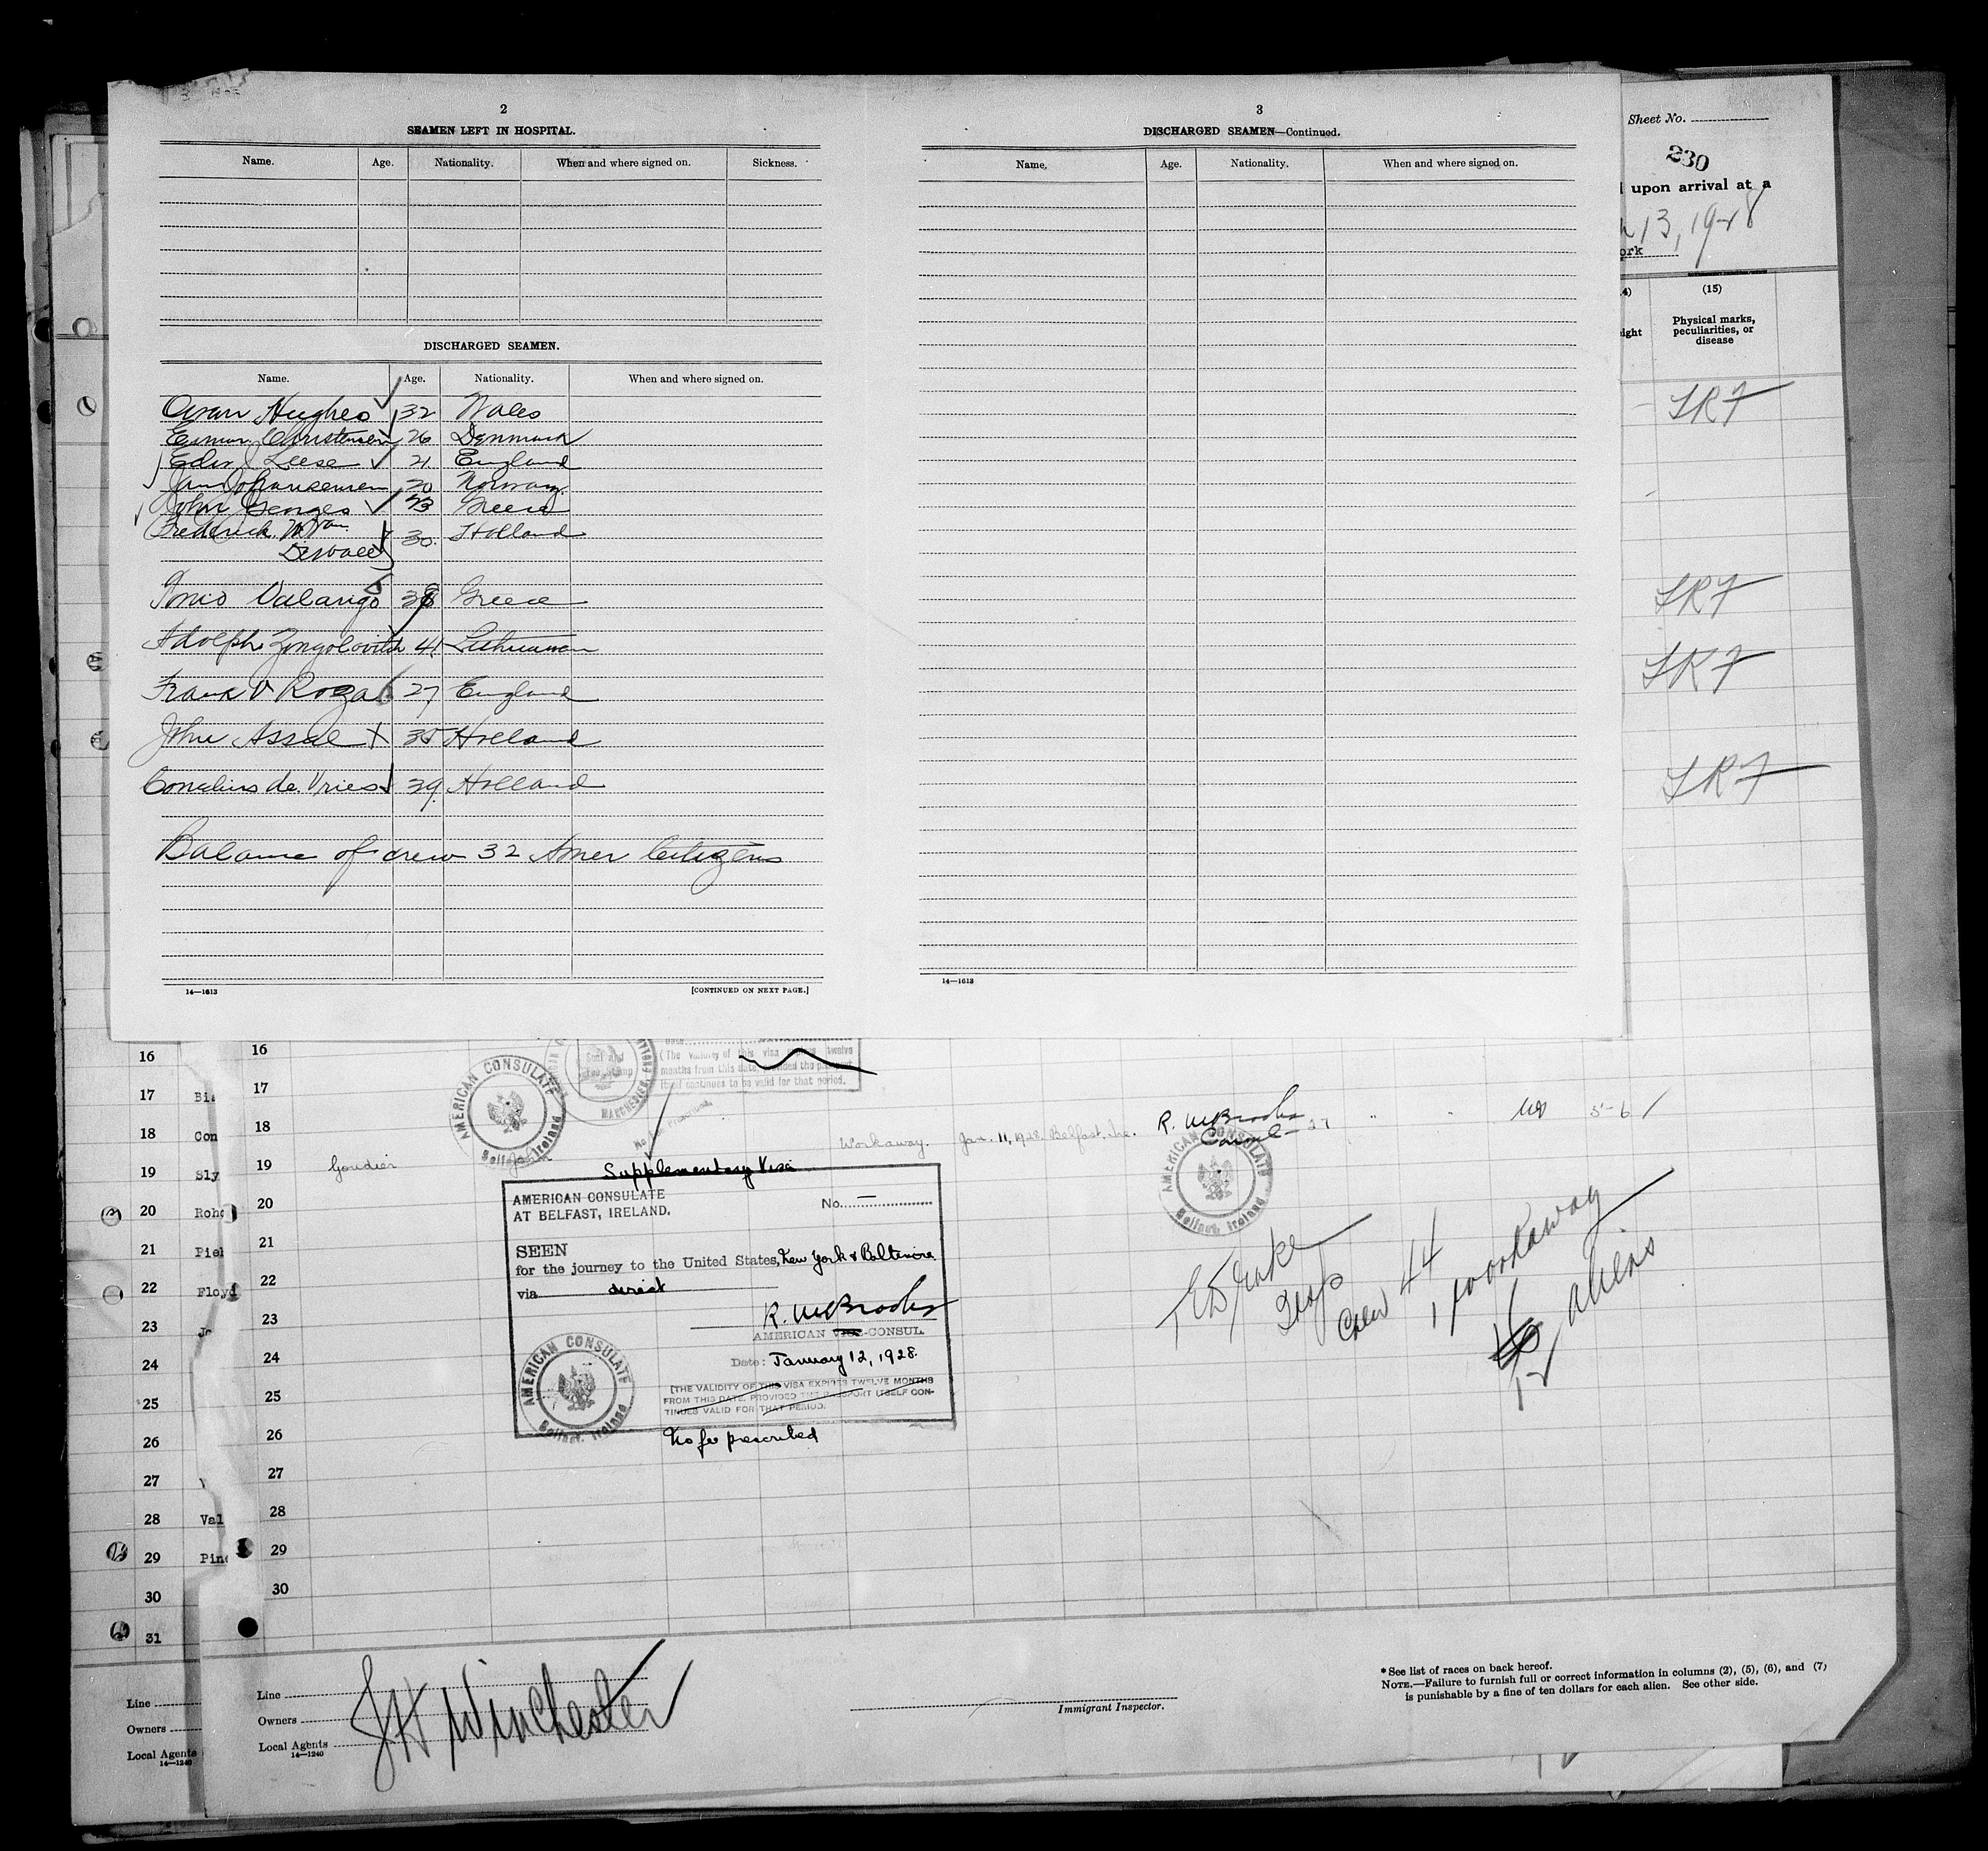 2
SEAMEN LEFT IN HOSPITAL.
Name. Age. Nationality. When and where signed on. Sickness.
DISCHARGED SEAMEN.
Name. Age. Nationality. When and where signed on.
Hughes 32 Wales
Christensen 26 Denmark
Leese 21 England
20 Norway
John Georges 23 Greece
Frederick W Van
30 Holland
Valarigo 38 Greece
Adolph Zongolovitch 41 Lithuanian
Frank V Roza 27 England
John Assal 35 Holland
Cornelius de Vries 39 Holland
Balance of crew 32 Amer Citizens
14—1613 [CONTINUED ON NEXT PAGE.]
3
DISCHARGED SEAMEN—Continued.
Name. Age. Nationality. When and where signed on.
14—1613
Sheet No.
230
upon arrival at a
13, 1928
ork
(15)
ight
Physical marks,
peculiarities, or
disease
16 16
17 17
18 Con 18
19 Sly 19 Goudier
20 20
21 21
22 Floyd 22
23 23
24 24
25 25
26 26
27 27
28 Val 28
29 29
30 30
31
(The validity of this visa expires twelve
months from this date, provided the passport
itself continues to be valid for that period.
AMERICAN CONSULATE
Belfast, Ireland
Workaway. Jan. 11, 1928. Belfast, Ire. R. McBrooks
Consul 27 " " 5-6
AMERICAN CONSULATE
Belfast, Ireland
Supplementary Visa
AMERICAN CONSULATE
AT BELFAST, IRELAND.
No. —
SEEN
for the journey to the United States, New York & Baltimore
via direct
AMERICAN VICE-CONSUL.
Date: January 12, 1928.
(THE VALIDITY OF THIS VISA EXPIRES TWELVE MONTHS
FROM THIS DATE, PROVIDED THE PASSPORT ITSELF CON-
TINUES VALID FOR THAT PERIOD.
AMERICAN CONSULATE
Belfast, Ireland
No fee prescribed
Insp
Crew 44
1 workaway
aliens
12
Line
Owners
Local Agents
14—1240
Line
Owners
Local Agents
14—1240
JH Winchester
Immigrant Inspector.
* See list of races on back hereof.
NOTE.—Failure to furnish full or correct information in columns (2), (5), (6), and (7)
is punishable by a fine of ten dollars for each alien. See other side.